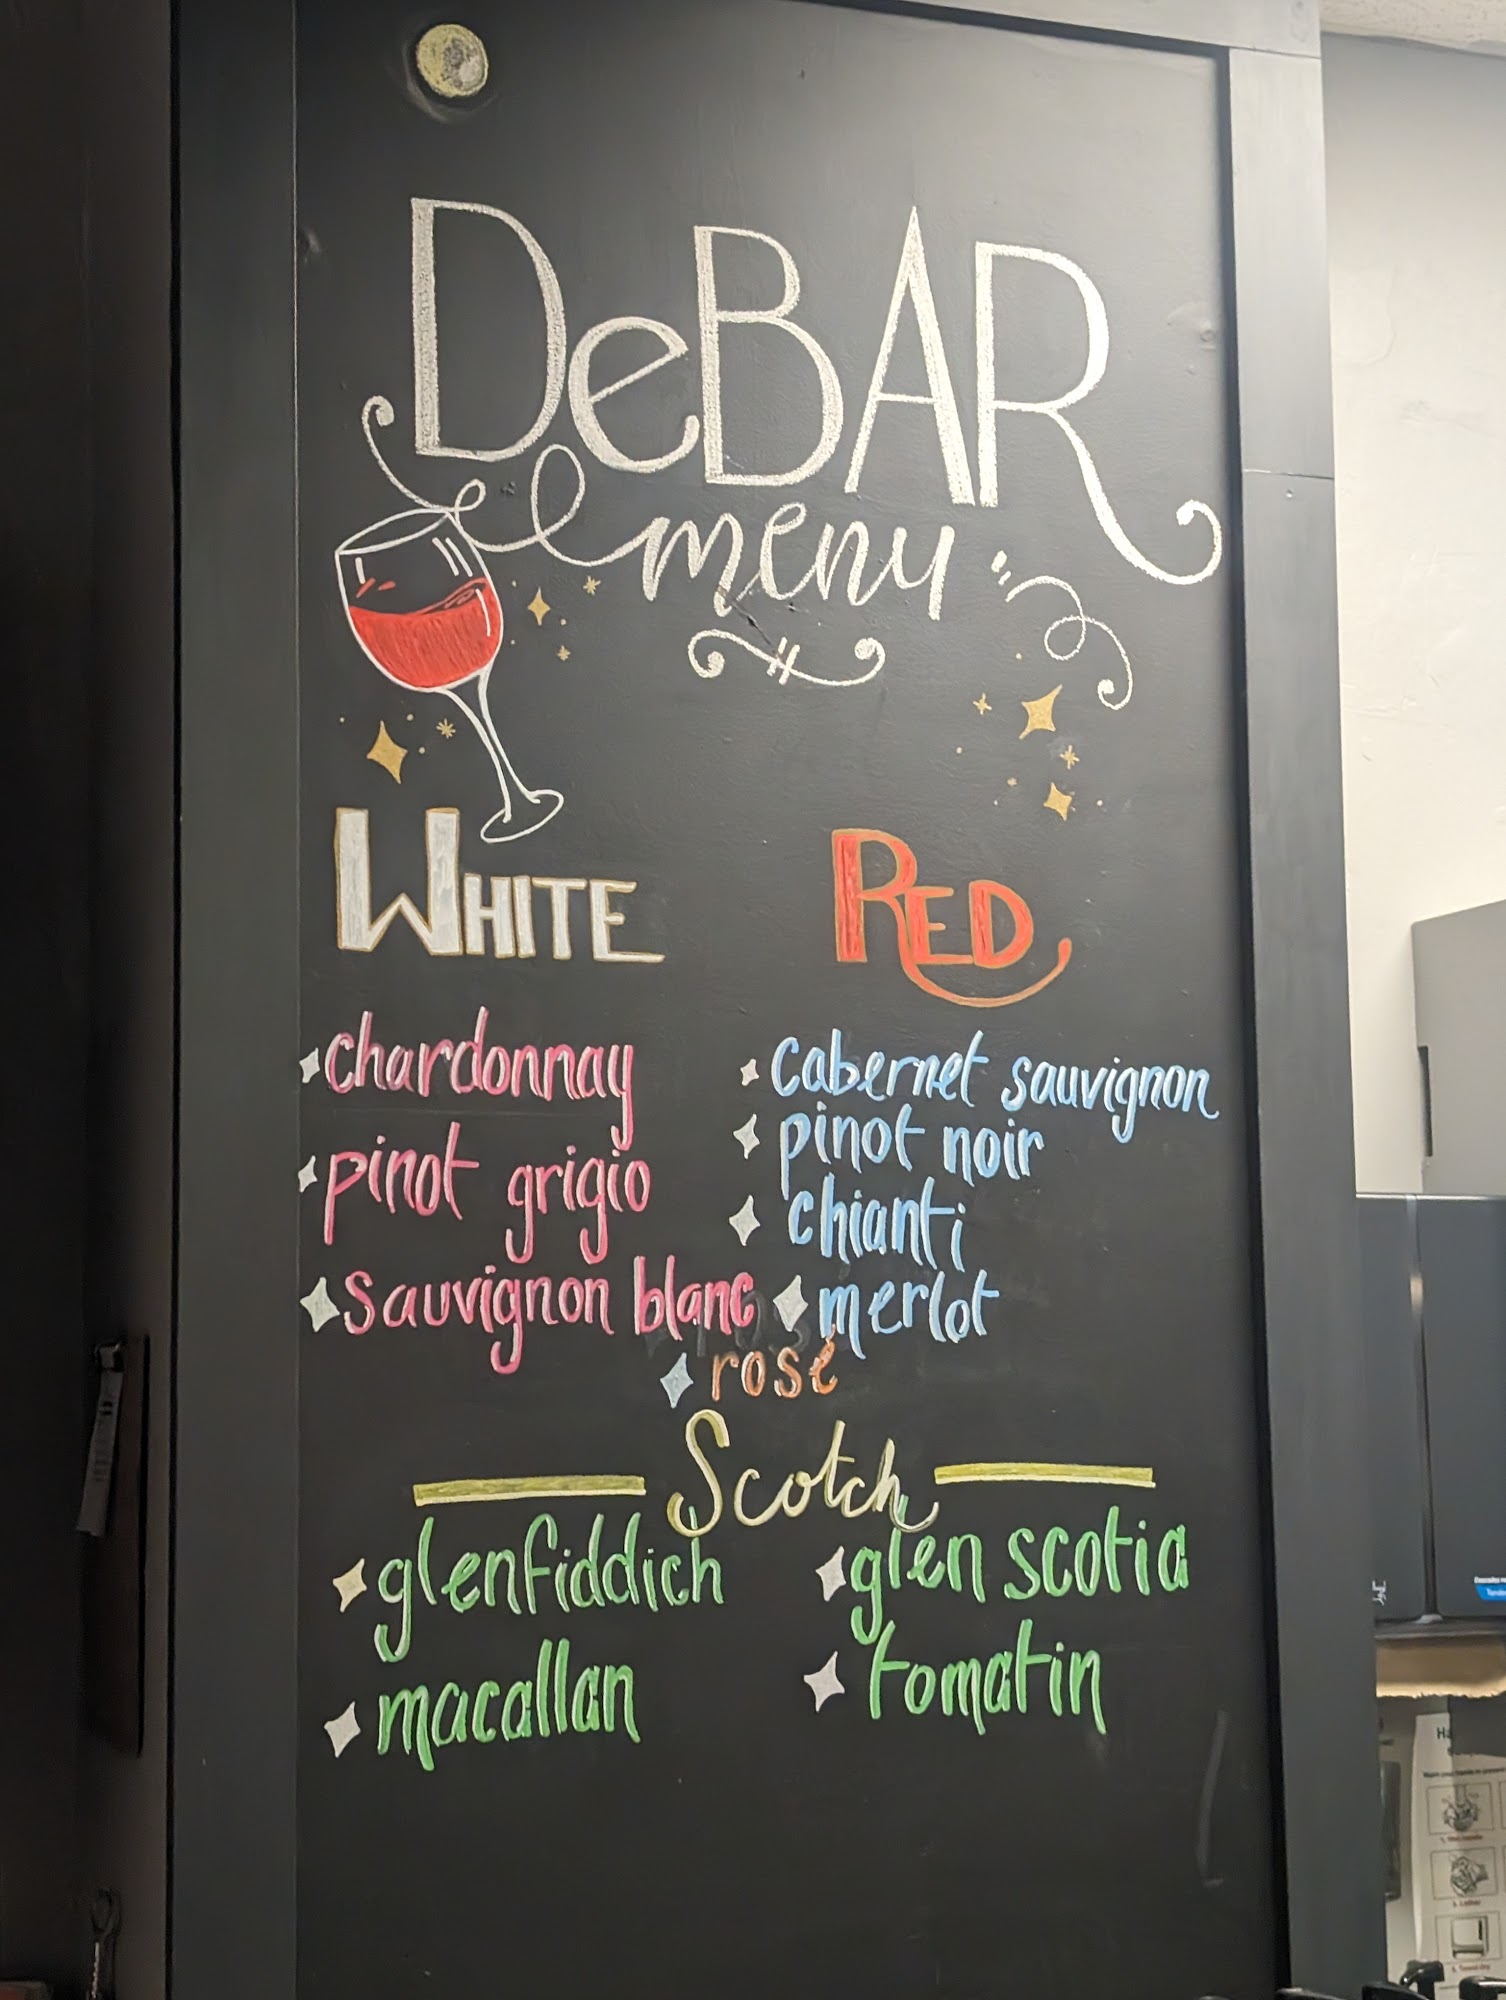 DeBAR
menu
WHITE
chardonnay
pinot grigio
sauvignon blanc
RED
cabernet sauvignon
pinot noir
chianti
merlot
rosé
Scotch
glenfiddich
macallan
glen scotia
tomatin